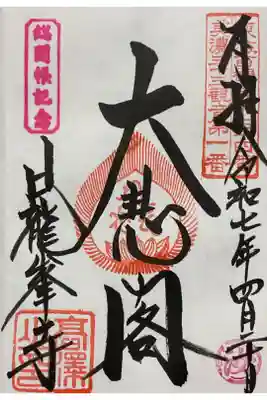 奉拝
令和七年四月二十日
美濃三十三観音第一番
大悲閣
總開帳記念
日龍峯寺
高澤